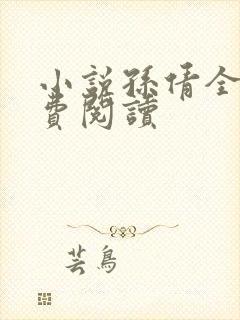 小説孫倩全
費閱讀
芸鳥